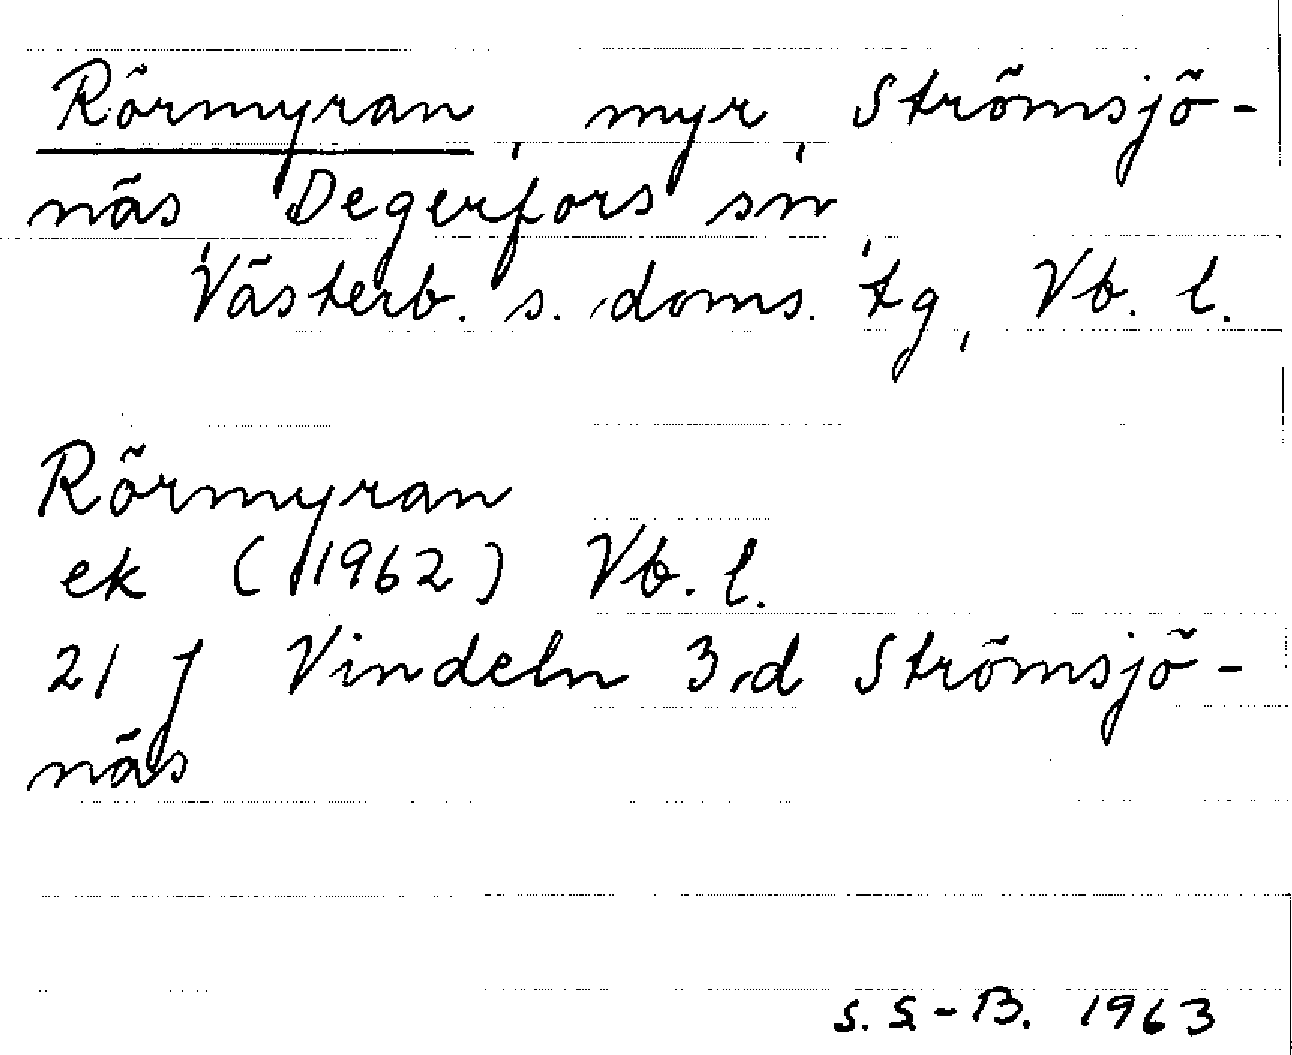 Rörmyran, myr, Strömsjö-
näs, Degerfors sn,
Västerb. s. doms. tg, Vb. l.
Rörmyran
ek (1962) Vb. l.
21 J Vindeln 3 d Strömsjö-
näs
S. S-B. 1963